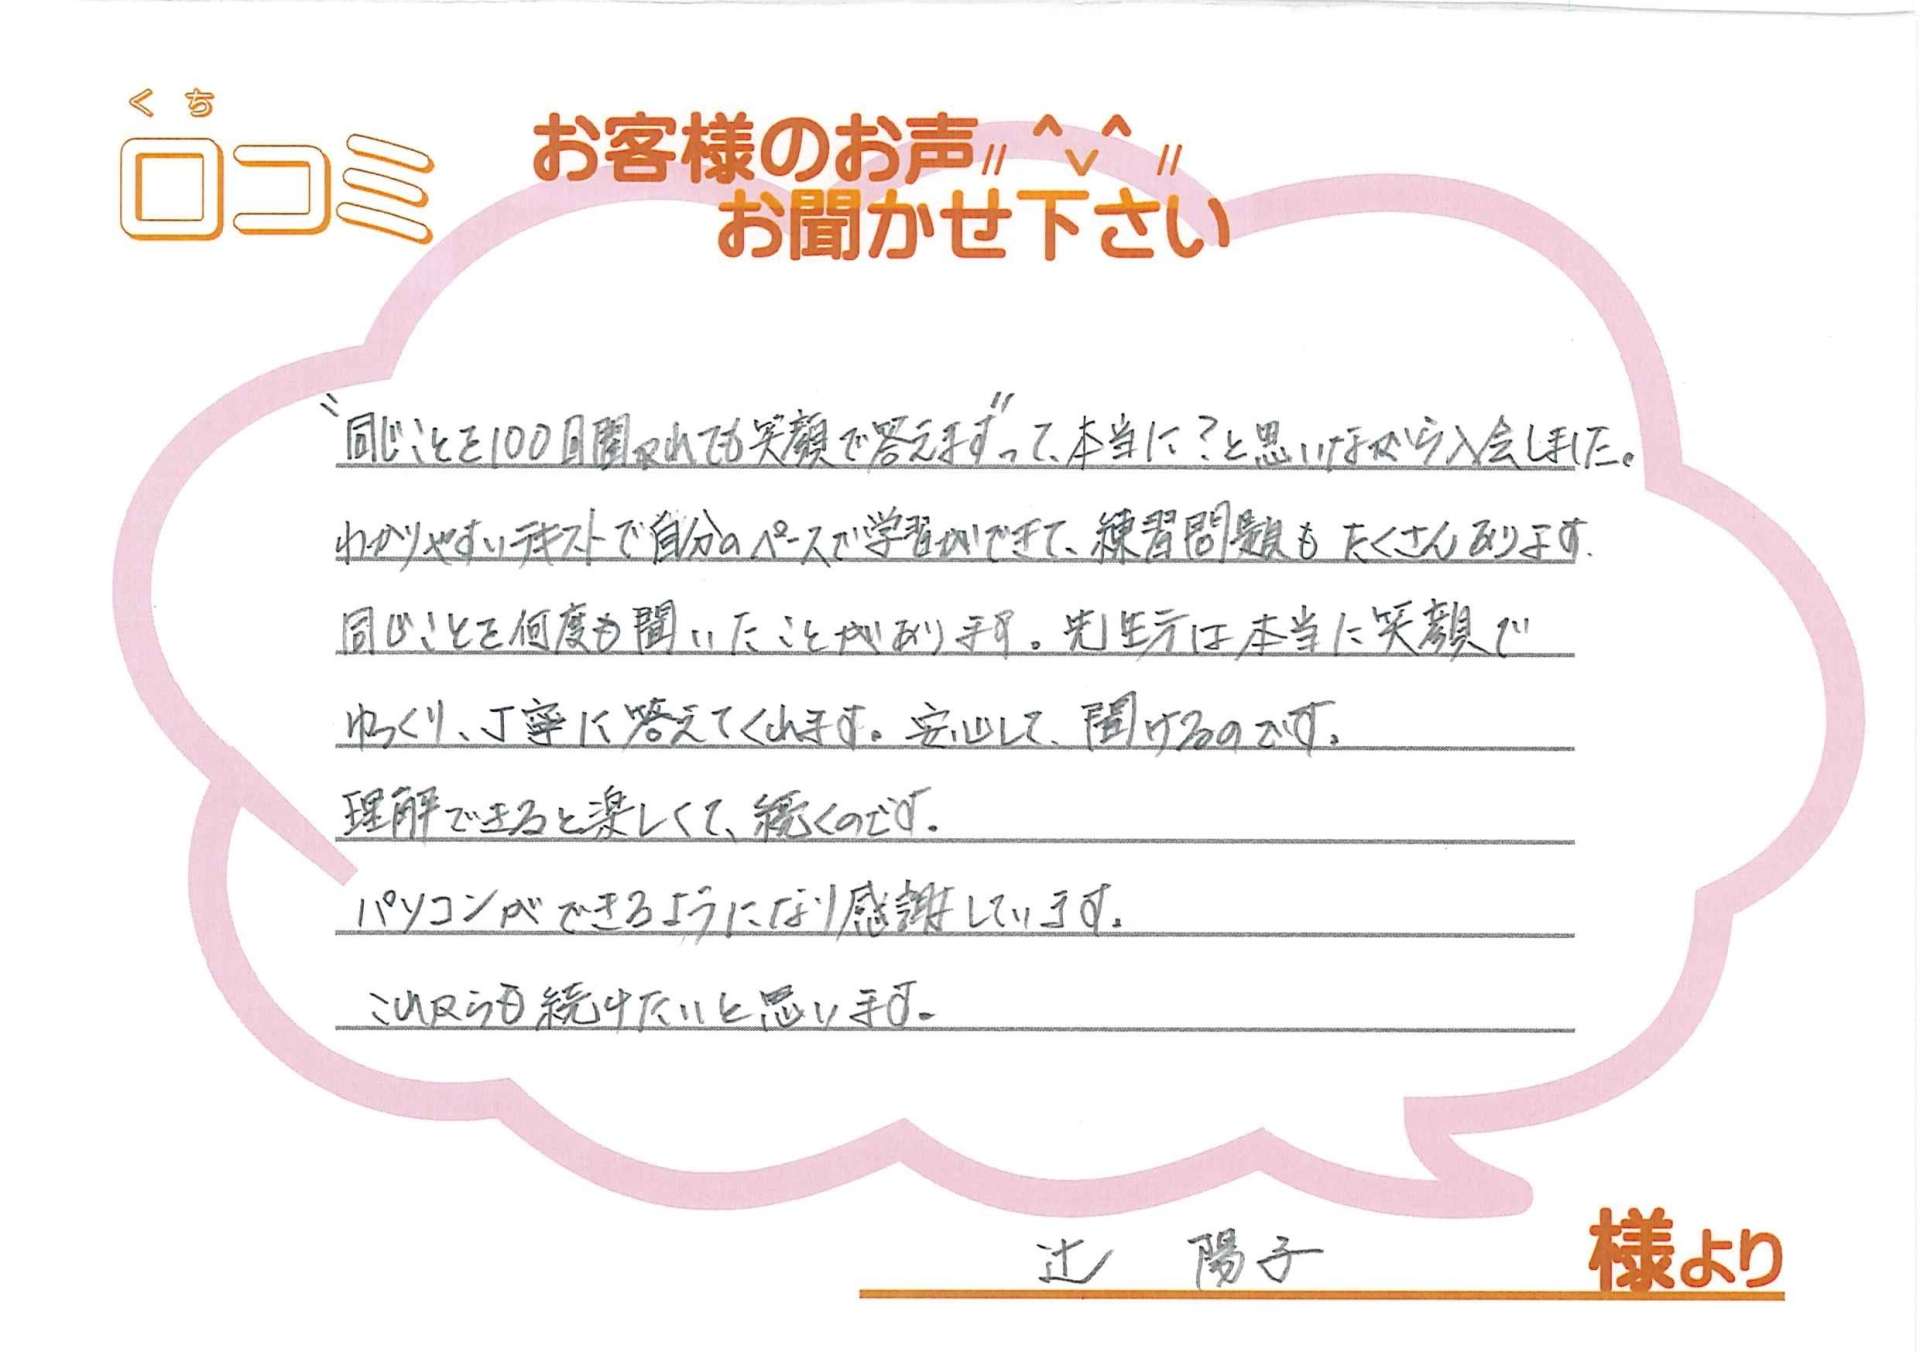 くち
口コミ
お客様のお声
お聞かせ下さい
"同じことを100回聞かれても笑顔で答えます"って、本当に?と思いながら入会しました。
わかりやすいテキストで自分のペースで学習ができて、練習問題もたくさんあります。
同じことを何度も聞いたことがあります。先生方は本当に笑顔で
ゆっくり、丁寧に答えてくれます。安心して、聞けるのです。
理解できると楽しくて、続くのです。
パソコンができるようになり感謝しています。
これからも続けたいと思います。
辻 陽子 様より